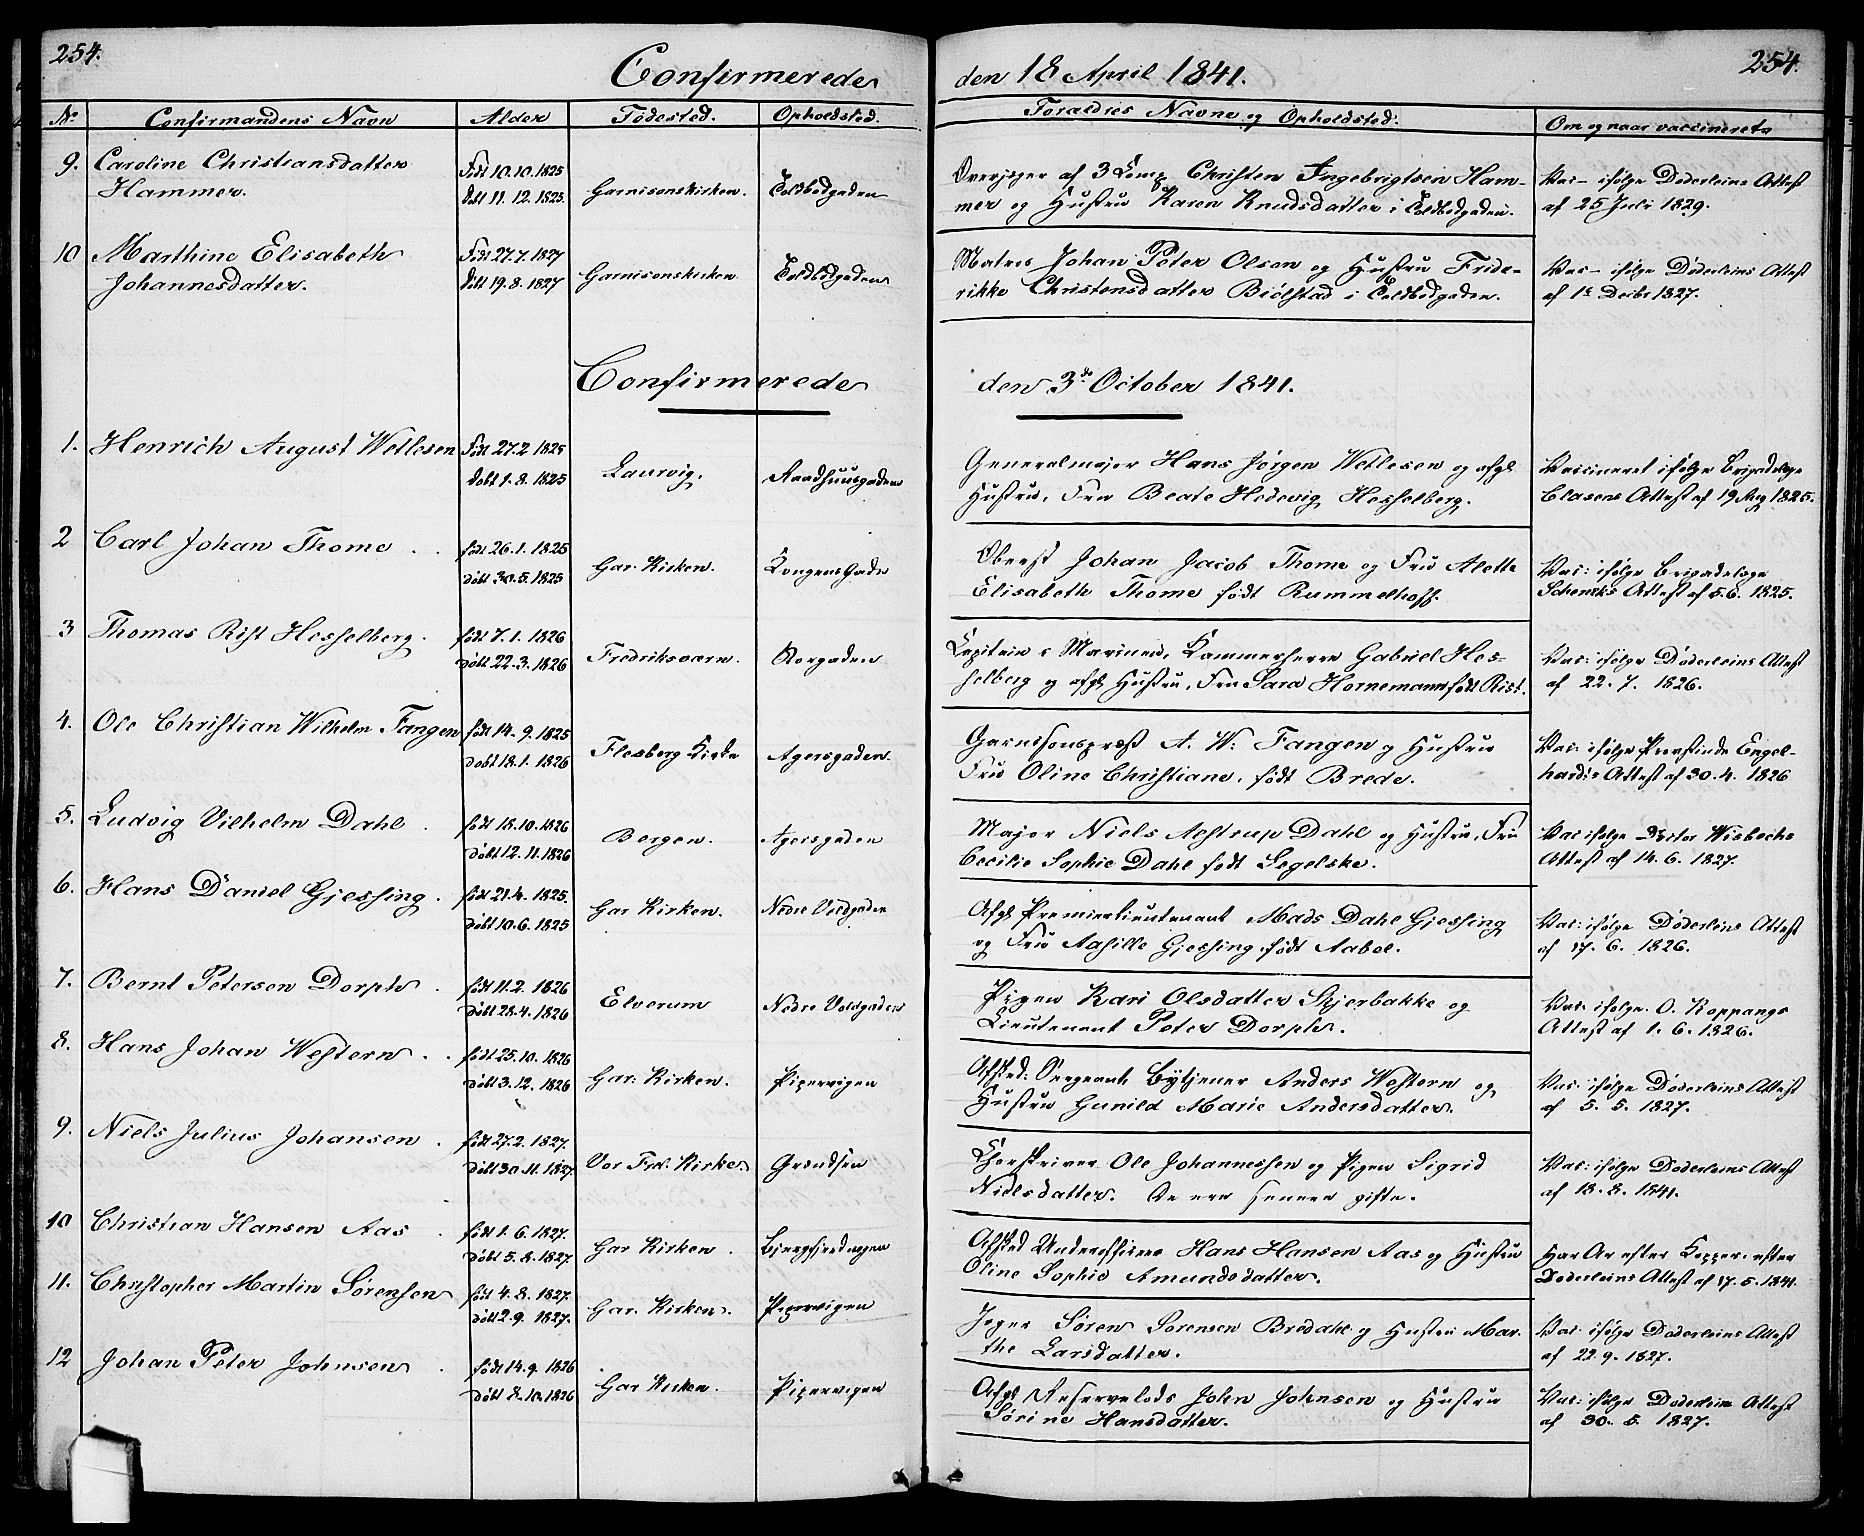 254.
Confirmerede den 18 April 1841.
254.
No Confirmandens Navn Alder Födested. Opholdsted. Forældres Navne og Opholdsted: Om og naar vaccineret
9. Caroline Christiansdatter Født 10.10.1825 Overjæger af 3 Comp Christen Ingebrigtsen Ham- Vac- ifølge Døderleins Attest
Hammer. Døbt 11.12.1825. Garnisonskirken. Toldbodgaden mer og Hustru Karen Knudsdatter i Toldbodgaden. af 25 Juli 1829.
10 Marthine Elisabeth Født 27.7.1827 Johan Peter Olsen og Hustru Fride- Vac- ifølge Døderleins Attest
Johannesdatter. Døbt 19.8.1827 Garnisonskirken Toldbodgaden rikke Christensdatter Biølstad i Toldbodgaden. af 1827.
Confirmerede den 3de October 1841.
1. Henrich August Wetlesen Født 27.2 1825 Generalmajor Hans Jørgen Wetlesen og afgl Vaccineret ifølge Brigadelæge
Døbt 1.8.1825 Laurvig. Raadhuusgaden Hustru, Fru Beate Hedevig Hesselberg. Clasens Attest af 19 Aug 1825.
2 Carl Johan Thome født 26.1.1825 Oberst Johan Jacob Thome og Fru Alette Vac: ifølge Brigadelæge
døbt 30.5.1825 Gar. Kirken. Kongens Gade Elisabeth Thome født Rummelhoff. Schencks Attest af 5.6. 1825.
3 Thomas Rist Hesselberg. født 7.1.1826 Capitain i Marinen, Kammerherre Gabriel Hes- Vac: ifølge Døderleins Attest
døbt 22.3.1826 Fredriksværn. selberg og afgl Hustru, Fru Sara Hornemann født Rist. af 22.7. 1826.
4. Ole Christian Wilhelm Fangen født 14.9.1825 Garnisonspræst A. W. Fangen og Hustru Vac: ifølge Engel-
døbt 18.1.1826 Flesberg Kirke Agersgaden Fru Oline Christiane, født Brede. hardts Attest af 30.4. 1826
5. Ludvig Vilhelm Dahl født 18.10.1826 Major Niels Aestrup Dahl og Hustru, Fru Vac ifølge Doctor Wisbechs
døbt 12.11.1826 Bergen. Agersgaden Cecilie Sophie Dahl født Segelske. Attest af 14.6.1827.
6. Hans Daniel Gjessing. født 21.4.1825. Afgl Premierlieutenant Mads Dahl Gjessing Vac: ifølge Døderleins Attest
døbt 10.6.1825 Gar Kirken. Nedre Voldgaden og Fru Gjessing født Aabel. af 17.6. 1826.
7. Bernt Petersen Dorph født 11.2.1826 Pigen Kari Olsdatter Skjerbakke og Vac: ifølge O. Koppangs
døbt 28.4.1826 Elverum Nedre Voldgaden Lieutenant Peter Dorph. Attest af 1.6.1826.
8. Hans Johan Western født 25.10.1826 Afsked: Sergeant Bytjener Anders Western og Vac: ifølge Døderleins Attest
døbt 3.12.1826 Gar. Kirken. Pipervigen Hustru Gunild Marie Andersdatter. af 5.5. 1827.
9. Niels Julius Johansen født 27.2.1827. Ole Johannessen og Pigen Sigrid Vac: ifølge Døderleins Attest
døbt 30.11.1827 Vor Frel. Kirke Grændsen Nielsdatter. De ere senere gifte. af 18.8. 1841.
10 Christian Hansen Aas født 1.6.1827. Afsked Underofficeer Hans Hansen Aas og Hustru Har Ar efter Kopper. efter
døbt 5.8.1827. Gar Kirken Oline Sophie Amundsdatter. Døderleins Attest af 17.5.1841.
11. Christopher Martin Sørensen født 4.8.1827. Jæger Søren Sørensen Bredahl og Hustru Mar- Vac. ifølge Døderleins Attest
døbt 2.9.1827. Gar. Kirken. Pipervigen the Larsdatter. af 22.9.1827.
12 Johan Peter Johnsen født 14.9.1826 Afgl John Johnsen og Hustru Vac: ifølge Døderleins Attest
døbt 8.10.1826 Gar Kirken. Pipervigen Sørine Hansdatter. af 30.5. 1827.